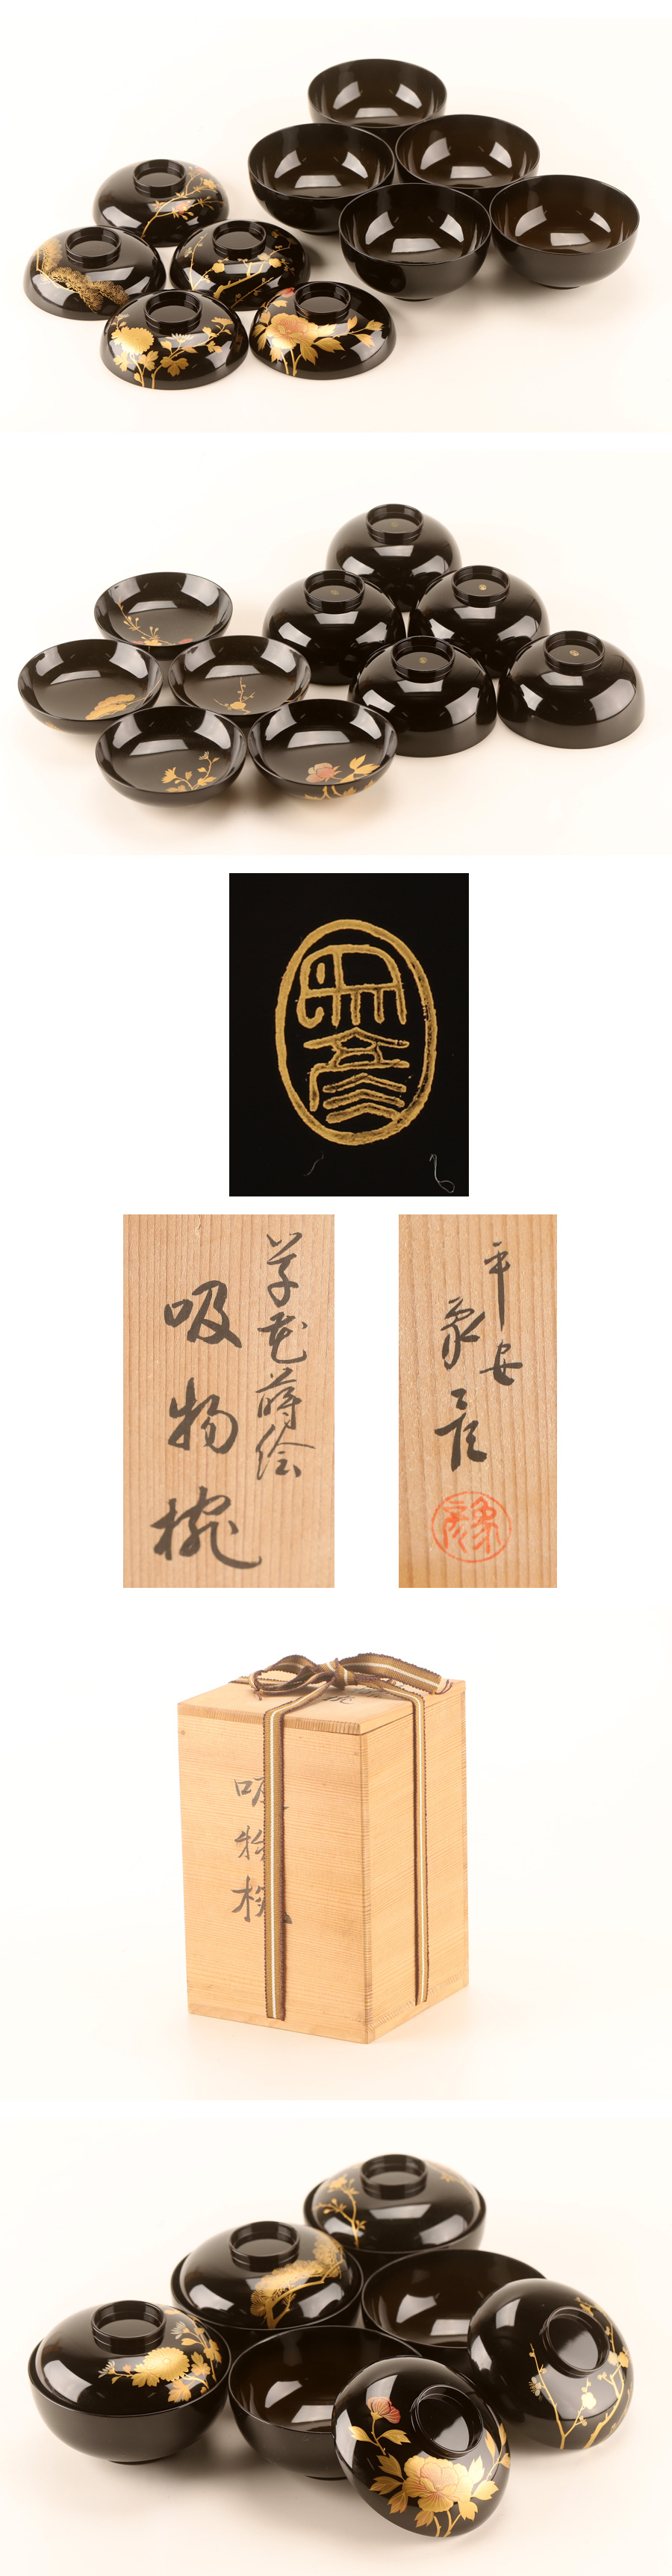 象彦
草花蒔絵
吸物椀
平安
象彦
吸物椀